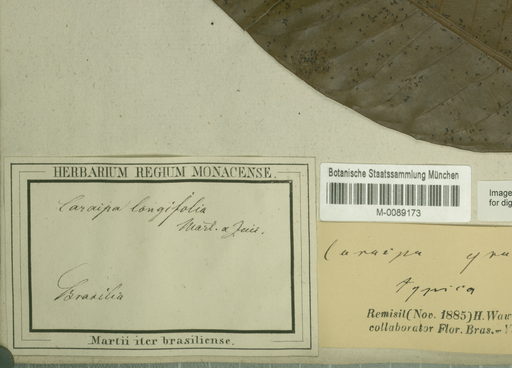 HERBARIUM REGIUM MONACENSE.
Caraipa longifolia
Mart.
Brasilia
Martii iter brasiliense.
Botanische Staatssammlung München
M-0089173
Image
for dig
Caraipa gra
typica
Remisit (Nov. 1885) H. Waw
collaborator Flor. Bras.